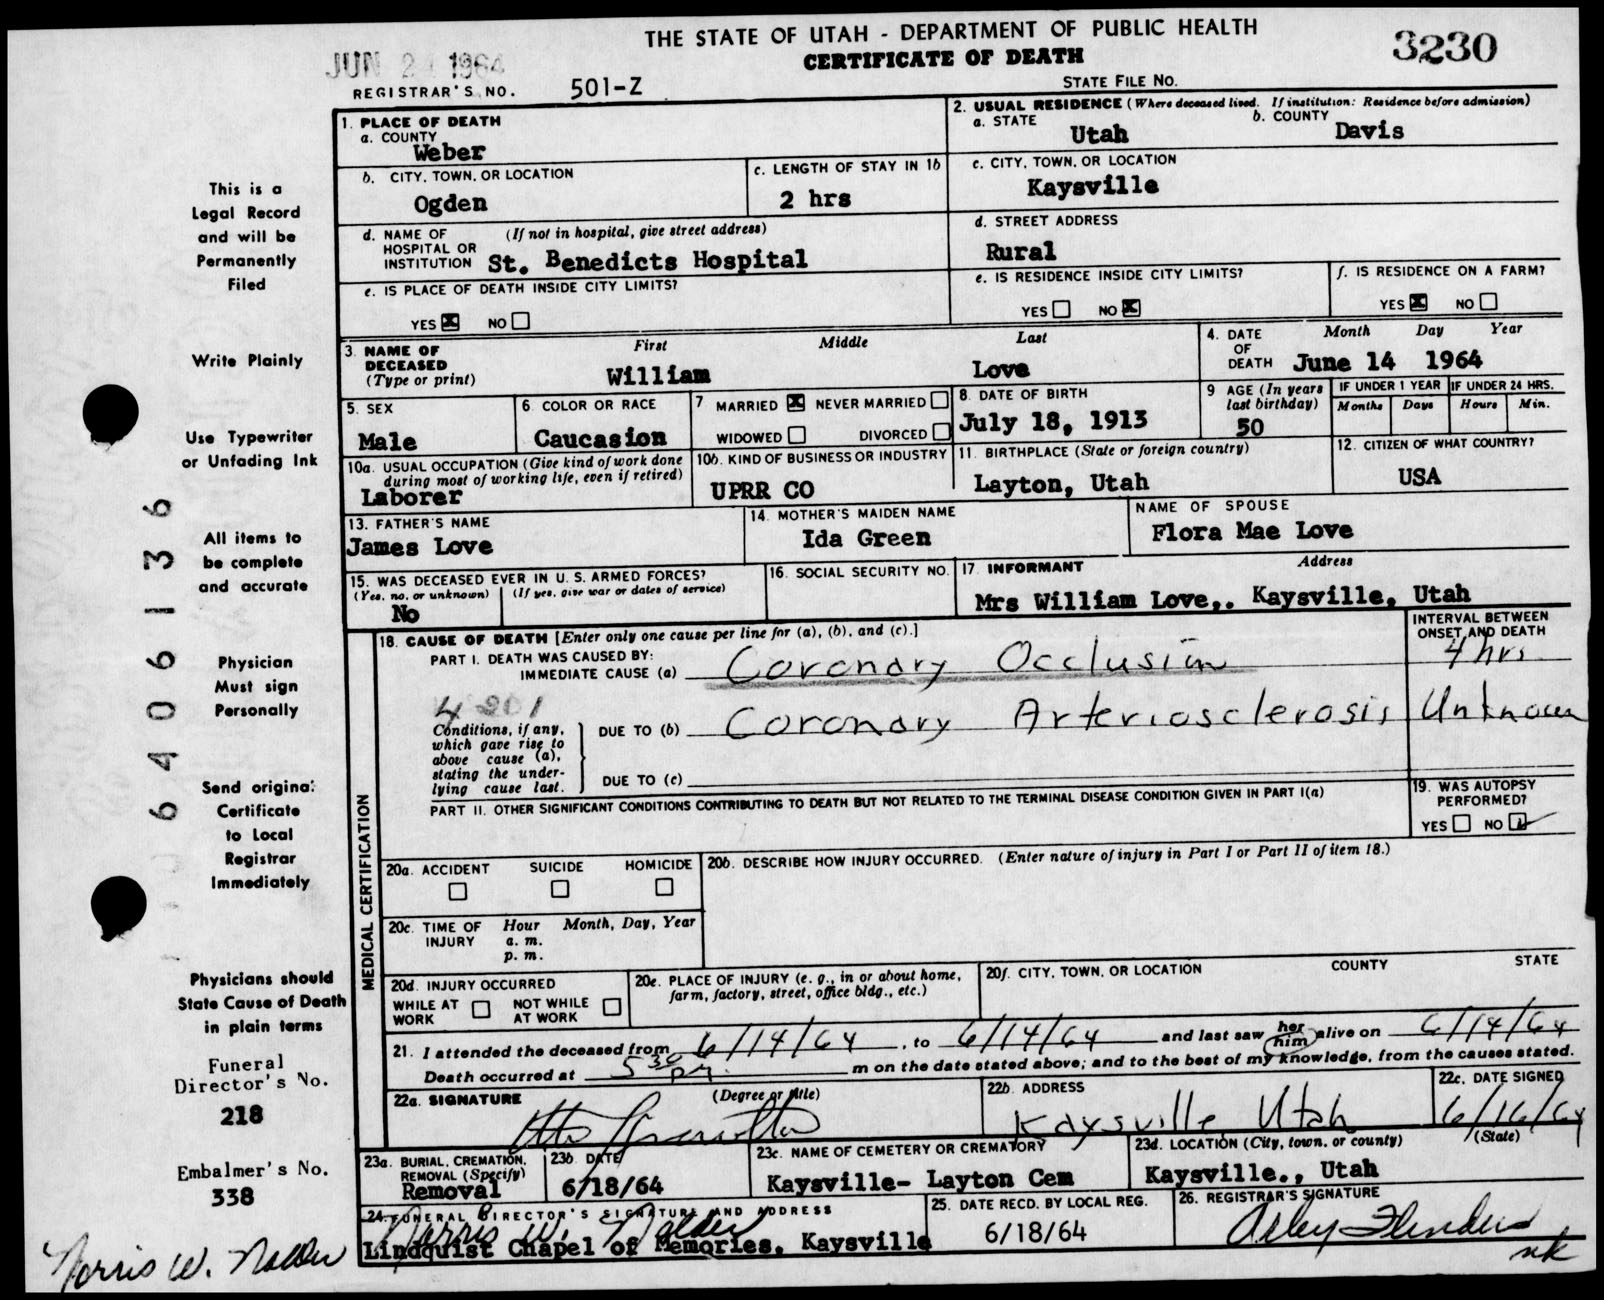 THE STATE OF UTAH - DEPARTMENT OF PUBLIC HEALTH
CERTIFICATE OF DEATH
3230
JUN 2 1964
REGISTRAR'S NO. 501-Z
STATE FILE NO.
This is a
Legal Record
and will be
Permanently
Filed
Write Plainly
Use Typewriter
or Unfading Ink
All items to
be complete
and accurate
Physician
Must sign
Personally
Send original
Certificate
to Local
Registrar
Immediately
Physicians should
State Cause of Death
in plain terms
Funeral
Director's No.
218
Embalmer's No.
338
64 06136
1. PLACE OF DEATH
a. COUNTY
Weber
2. USUAL RESIDENCE (Where deceased lived. If institution: Residence before admission)
a. STATE Utah
b. COUNTY Davis
b. CITY, TOWN, OR LOCATION
Ogden
c. LENGTH OF STAY IN 1b
2 hrs
c. CITY, TOWN, OR LOCATION
Kaysville
d. NAME OF HOSPITAL OR INSTITUTION (If not in hospital, give street address)
St. Benedicts Hospital
d. STREET ADDRESS
Rural
e. IS PLACE OF DEATH INSIDE CITY LIMITS?
YES X NO
e. IS RESIDENCE INSIDE CITY LIMITS?
YES NO X
f. IS RESIDENCE ON A FARM?
YES X NO
3. NAME OF DECEASED (Type or print)
First Middle Last
William Love
4. DATE OF DEATH Month Day Year
June 14 1964
5. SEX
Male
6. COLOR OR RACE
Caucasion
7 MARRIED X NEVER MARRIED
WIDOWED DIVORCED
8. DATE OF BIRTH
July 18, 1913
9 AGE (In years last birthday)
50
IF UNDER 1 YEAR IF UNDER 24 HRS.
Months Days Hours Min.
10a. USUAL OCCUPATION (Give kind of work done during most of working life, even if retired)
Laborer
10b. KIND OF BUSINESS OR INDUSTRY
UPRR CO
11. BIRTHPLACE (State or foreign country)
Layton, Utah
12. CITIZEN OF WHAT COUNTRY?
USA
13. FATHER'S NAME
James Love
14. MOTHER'S MAIDEN NAME
Ida Green
NAME OF SPOUSE
Flora Mae Love
15. WAS DECEASED EVER IN U. S. ARMED FORCES?
(Yes, no. or unknown) (If yes, give war or dates of service)
No
16. SOCIAL SECURITY NO.
17. INFORMANT Address
Mrs William Love,. Kaysville, Utah
MEDICAL CERTIFICATION
18. CAUSE OF DEATH [Enter only one cause per line for (a), (b), and (c).]
INTERVAL BETWEEN ONSET AND DEATH
PART I. DEATH WAS CAUSED BY:
IMMEDIATE CAUSE (a) Coronary Occlusion 4 hrs
4201
Conditions, if any, which gave rise to above cause (a), stating the underlying cause last.
DUE TO (b) Coronary Arteriosclerosis Unknown
DUE TO (c)
PART II. OTHER SIGNIFICANT CONDITIONS CONTRIBUTING TO DEATH BUT NOT RELATED TO THE TERMINAL DISEASE CONDITION GIVEN IN PART I(a)
19. WAS AUTOPSY PERFORMED?
YES NO ✓
20a. ACCIDENT SUICIDE HOMICIDE
20b. DESCRIBE HOW INJURY OCCURRED. (Enter nature of injury in Part I or Part II of item 18.)
20c. TIME OF INJURY Hour Month, Day, Year
a. m.
p. m.
20d. INJURY OCCURRED
WHILE AT WORK NOT WHILE AT WORK
20e. PLACE OF INJURY (e. g., in or about home, farm, factory, street, office bldg., etc.)
20f. CITY, TOWN, OR LOCATION COUNTY STATE
21. I attended the deceased from 6/14/64, to 6/14/64 and last saw her him alive on 6/14/64
Death occurred at 5 30 PM m on the date stated above; and to the best of my knowledge, from the causes stated.
22a. SIGNATURE (Degree or title)
22b. ADDRESS
Kaysville Utah
22c. DATE SIGNED
6/16/64
23a. BURIAL, CREMATION, REMOVAL (Specify)
Removal
23b. DATE
6/18/64
23c. NAME OF CEMETERY OR CREMATORY
Kaysville- Layton Cem
23d. LOCATION (City, town. or county) (State)
Kaysville., Utah
24. FUNERAL DIRECTOR'S SIGNATURE AND ADDRESS
Norris W. Nalder
Lindquist Chapel of Memories, Kaysville
25. DATE RECD. BY LOCAL REG.
6/18/64
26. REGISTRAR'S SIGNATURE
nk
Norris W. Nalder